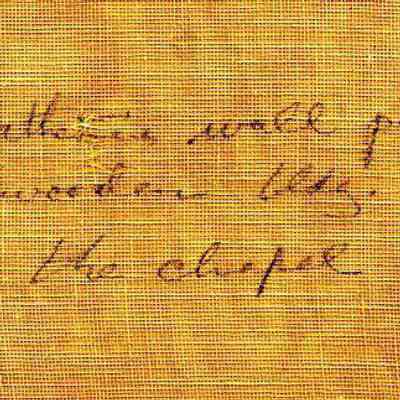 wall
wooden bldg.
the chapel